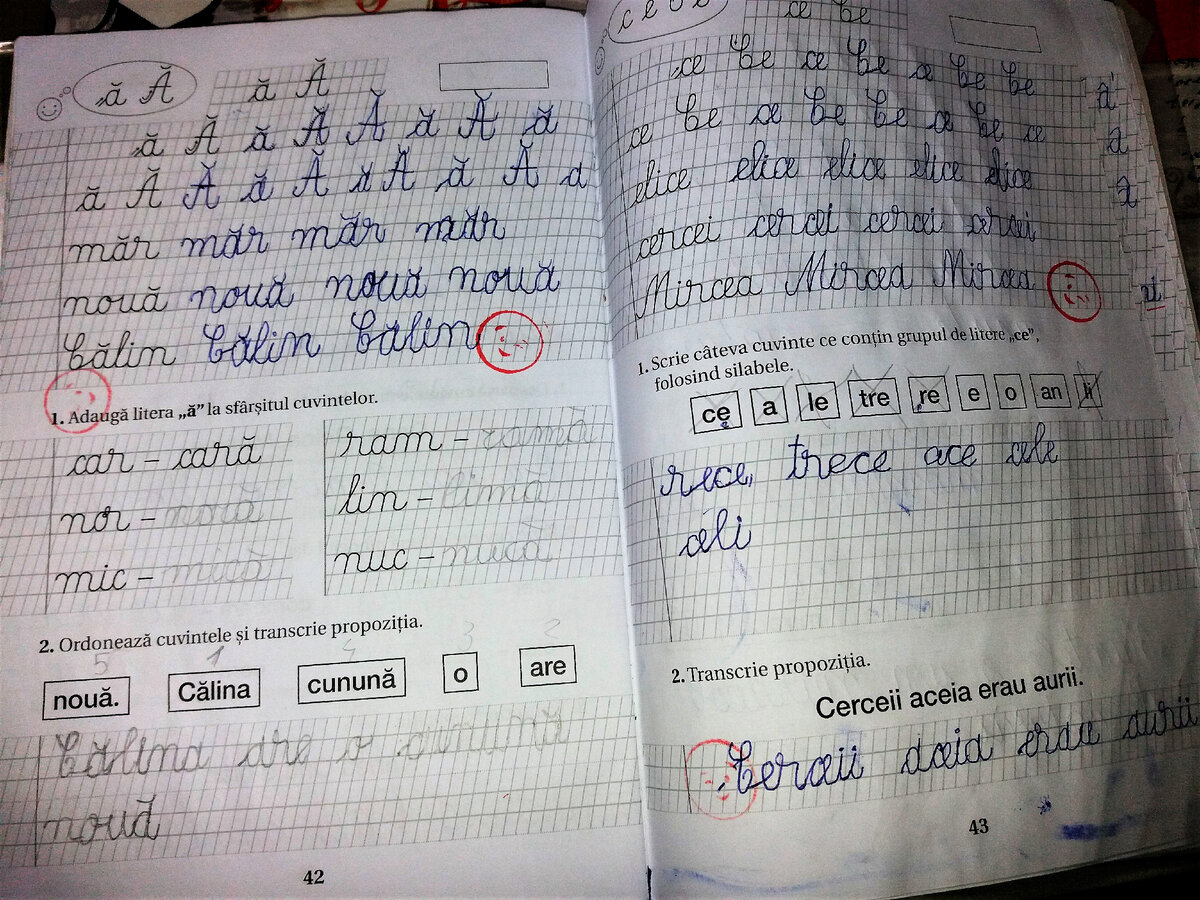 ă Ă ă Ă
ă Ă ă Ă Ă ă Ă ă
ă Ă Ă ă Ă ă Ă ă Ă ă
măr măr măr măr
nouă nouă nouă nouă
Călin Călin Călin
1. Adaugă litera „ă” la sfârșitul cuvintelor.
car – cară
nor – noră
mic – mică
ram – ramă
lin – limă
nuc – nucă
2. Ordonează cuvintele și transcrie propoziția.
5 1 4 3 2
nouă. Călina cunună o are
Călina are o cunună
nouă
42
ce Ce
ce Ce ce Ce ce Ce Ce
ce Ce ce Ce Ce ce Ce ce
elice elice elice elice elice
cercei cercei cercei cercei
Mircea Mircea Mircea
1. Scrie câteva cuvinte ce conțin grupul de litere „ce”,
folosind silabele.
ce a le tre re e o an li
rece, trece ace cele
celi
2. Transcrie propoziția.
Cerceii aceia erau aurii.
Cerceii aceia erau aurii
43